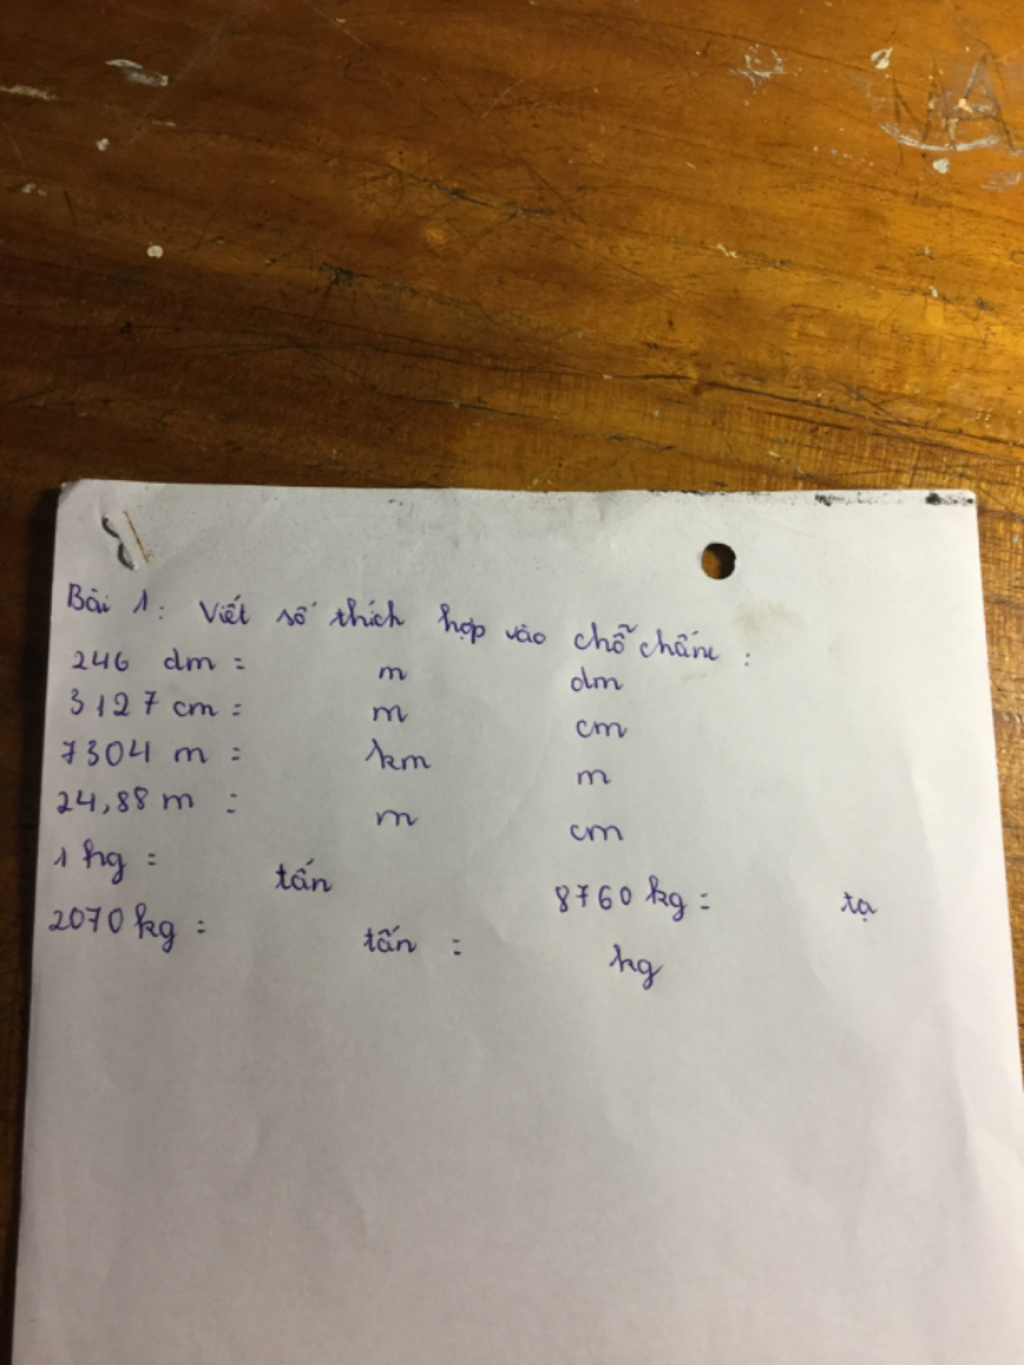 Bài 1: Viết số thích hợp vào chỗ chấm:
246 dm = m dm
3127 cm = m cm
7304 m = km m
24,88 m = m cm
1 kg = tấn 8760 kg = tạ
2070 kg = tấn = kg